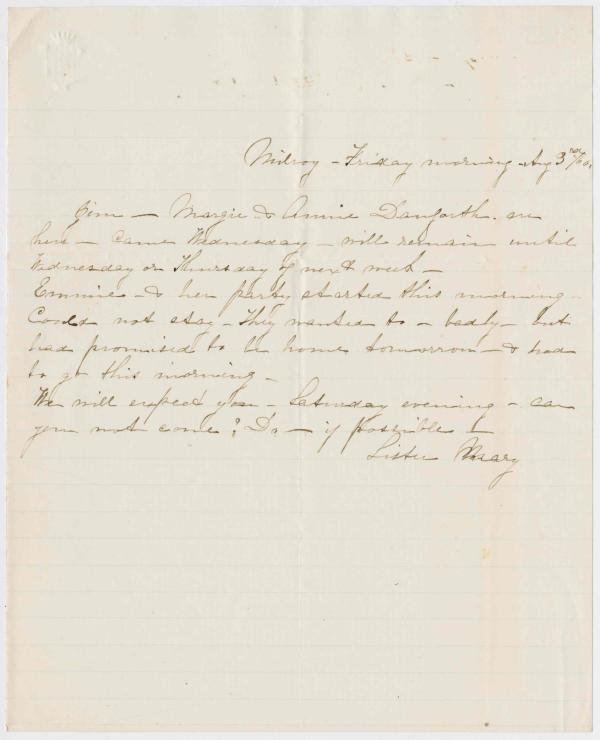 Milroy - Friday morning - Aug 3rd/60.
Jim - Margie & Annie Danforth are
here - came Wednesday - will remain until
Wednesday or Thursday of next week -
Emmie - & her party started this morning -
Could not stay - They wanted to - badly - but
had promised to be home tomorrow - & had
to go this morning -
We will expect you - Saturday evening - can
you not come? Do - if possible -
Sister Mary